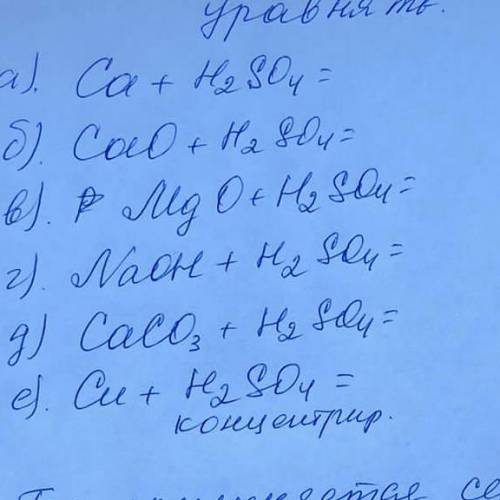 уравнять.
а). Ca + H₂SO₄ =
б). CaO + H₂SO₄ =
в). MgO + H₂SO₄ =
г). NaOH + H₂SO₄ =
д) CaCO₃ + H₂SO₄ =
е). Cu + H₂SO₄ =
концентрир.